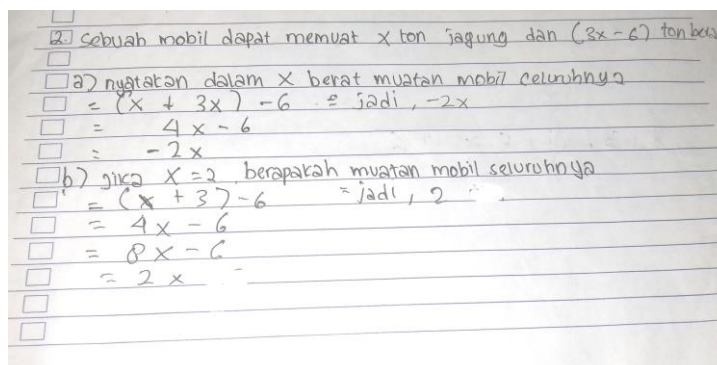 2. Sebuah mobil dapat memuat x ton jagung dan (3x - 6) ton
a) nyatakan dalam x berat muatan mobil celuruhnya
= (x + 3x) - 6 = jadi, -2x
= 4x - 6
= - 2x
b) jika x = 2 berapakah muatan mobil seluruhnya
= (x + 3) - 6 = jadi, 2
= 4x - 6
= 8x - 6
= 2x